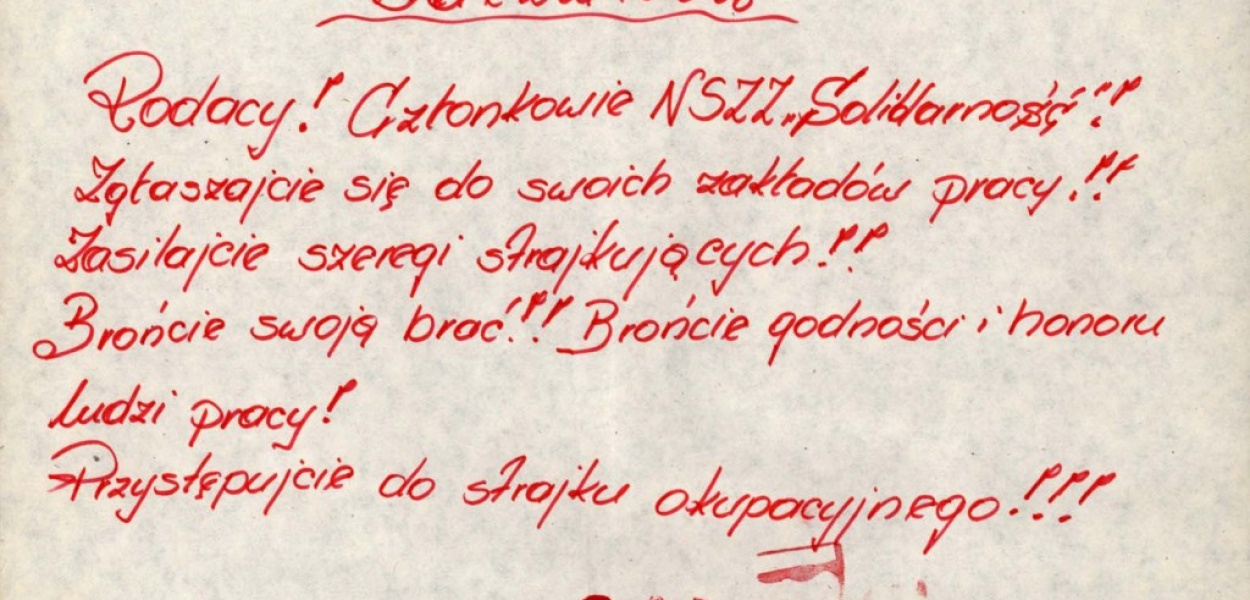 Rodacy! Członkowie NSZZ „Solidarność"!
Zgłaszajcie się do swoich zakładów pracy!!
Zasilajcie szeregi strajkujących!!
Brońcie swoją brać!!! Brońcie godności i honoru
ludzi pracy!
Przystępujcie do strajku okupacyjnego!!!